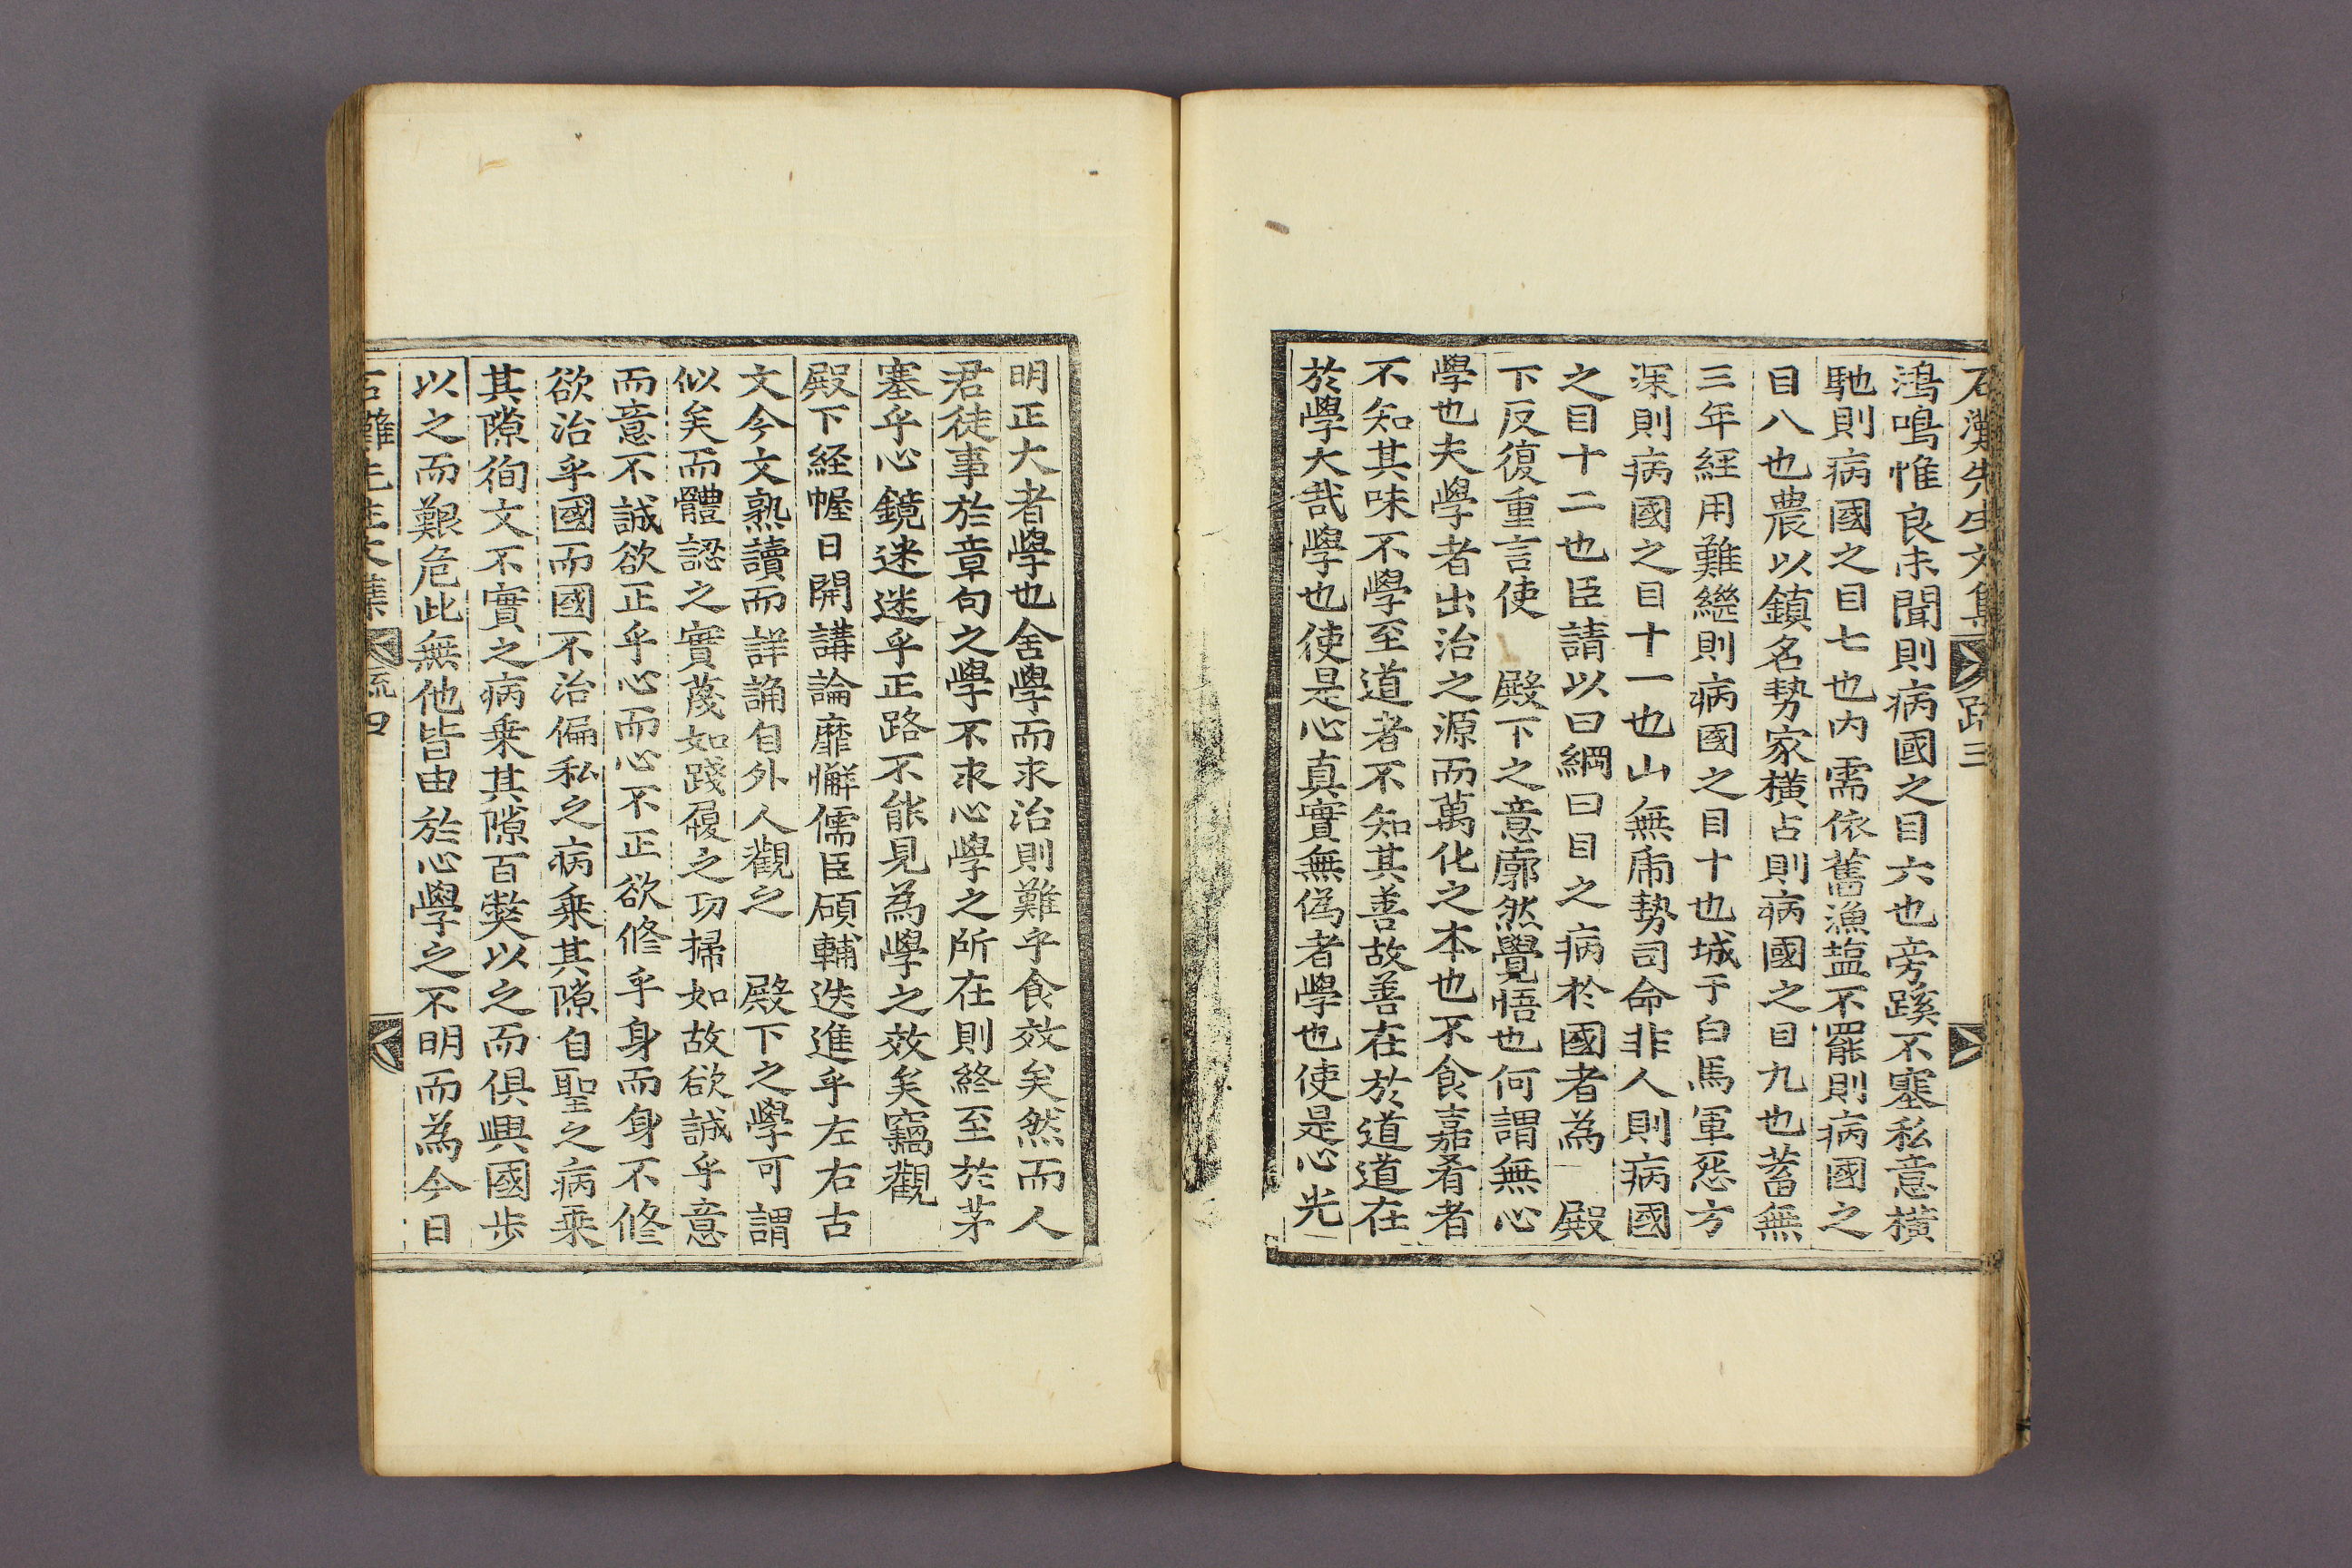 石灘先生文集 疏三
鴻鳴惟良未聞則病國之目六也旁蹊不塞私意橫
馳則病國之目七也內需依舊漁塩不罷則病國之
目八也農以鎮名勢家橫占則病國之目九也蓄無
三年經用難繼則病國之目十也城于白馬軍怨方
深則病國之目十一也山無虎勢司命非人則病國
之目十二也臣請以曰綱曰目之病於國者為 殿
下反復重言使 殿下之意廓然覺悟也何謂無心
學也夫學者出治之源而萬化之本也不食嘉肴者
不知其味不學至道者不知其善故善在於道道在
於學大哉學也使是心真實無偽者學也使是心光
明正大者學也舍學而求治則難乎食效矣然而人
君徒事於章句之學不求心學之所在則終至於茅
塞乎心鏡迷迷乎正路不能見為學之效矣竊觀
殿下経幄日開講論靡懈儒臣碩輔迭進乎左右古
文今文熟讀而詳誦自外人觀之 殿下之學可謂
似矣而體認之實蔑如踐履之功掃如故欲誠乎意
而意不誠欲正乎心而心不正欲修乎身而身不修
欲治乎國而國不治偏私之病乘其隙自聖之病乘
其隙徇文不實之病乘其隙百獘以之而俱興國步
以之而艱危此無他皆由於心學之不明而為今日
石灘先生文集 疏四